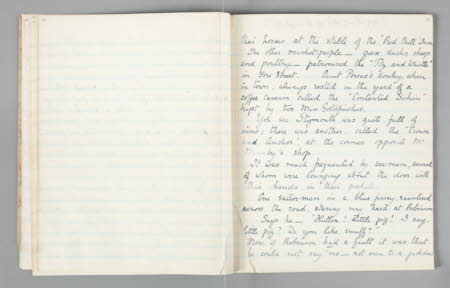 their horses at the stable of the "Red Bull Inn.
The other market-people — geese, ducks, sheep
and poultry — patronised the "Fly and Whistle"
in Fore Street. Aunt Porcas's donkey, when
in town, always rested in the yard of a
coffee tavern called the "Contented Siskin"
kept by two Miss Goldfinches.
You see Stymouth was quite full of
inns; there was another called the "Crown
and Anchor," at the corner opposite Mr
shop.
It was much frequented by sea-men, several
of whom were lounging about the door with
their hands in their pockets.
One sailor-man in a blue jersey, sauntered
across the road, staring very hard at Robinson
Says he — "Hullo! Little pig! I say,
little pig? Do you like snuff?"
Now if Robinson had a fault it was that
he could not say no — not even to a